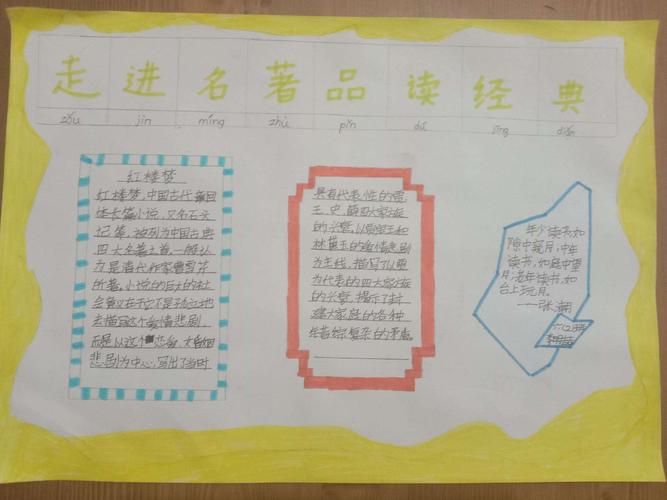 走进名著品读经典
zǒu jìn míng zhù pǐn dú jīng diǎn
红楼梦
红楼梦,中国古代章回
体长篇小说,又名石头
记等,被列为中国古典
四大名著之首,一般认
为是清代作家曹雪芹
所著。小说的巨大的社
会意义在于它不是孤立地
去描写这个爱情悲剧,
而是以这个恋爱,婚姻
悲剧为中心,写出了当时
具有代表性的贾
王,史,薛四大家族
的兴衰,以贾宝玉和
林黛玉的爱情悲剧
为主线,描写了以贾
为代表的四大家族
的兴衰,揭示了封
建大家庭的各种
错综复杂的矛盾。
年少读书,如
隙中窥月;中年
读书,如庭中望
月;老年读书,如
台上玩月。
——张潮